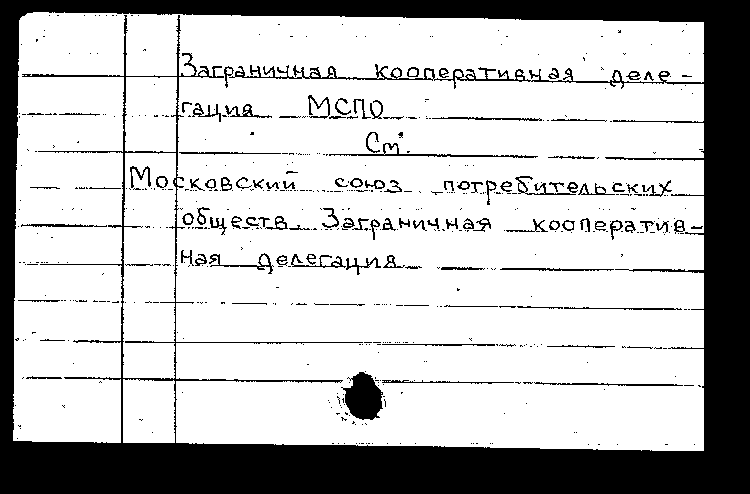 Заграничная кооперативная деле-
гация МСПО
См.
Московский союз потребительских
обществ. Заграничная кооператив-
ная делегация